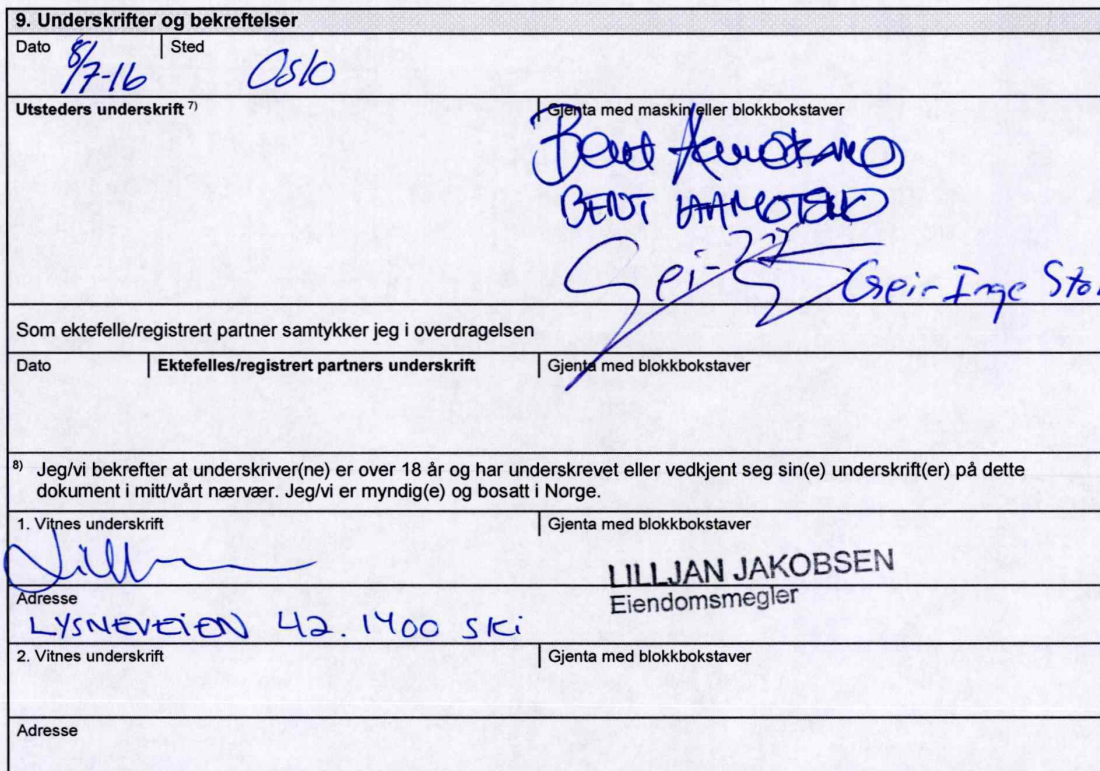 9. Underskrifter og bekreftelser
Dato
Sted
8/7-16 Oslo
Utsteders underskrift 7)
Gjenta med maskin eller blokkbokstaver
Bent
BENT
Geir Inge
Som ektefelle/registrert partner samtykker jeg i overdragelsen
Dato
Ektefelles/registrert partners underskrift
Gjenta med blokkbokstaver
8) Jeg/vi bekrefter at underskriver(ne) er over 18 år og har underskrevet eller vedkjent seg sin(e) underskrift(er) på dette
dokument i mitt/vårt nærvær. Jeg/vi er myndig(e) og bosatt i Norge.
1. Vitnes underskrift
Gjenta med blokkbokstaver
LILLJAN JAKOBSEN
Eiendomsmegler
Adresse
LYSNEVEIEN 42. 1400 SKi
2. Vitnes underskrift
Gjenta med blokkbokstaver
Adresse